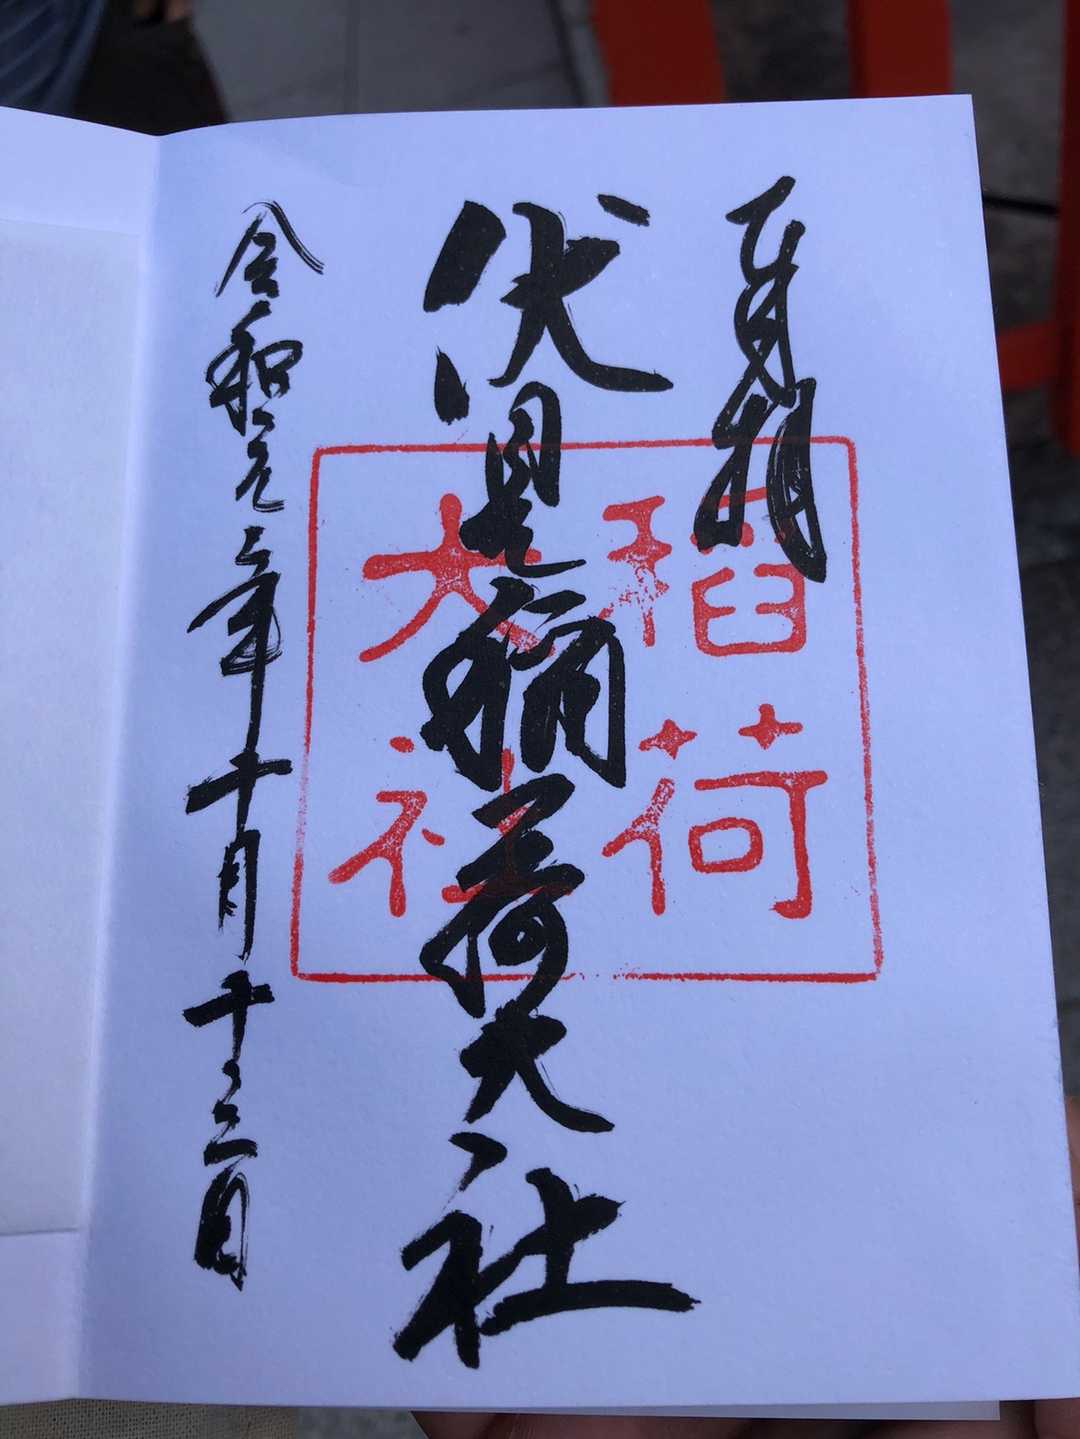 伏見稲荷大社
令和元年十月十三日
稲荷
大社